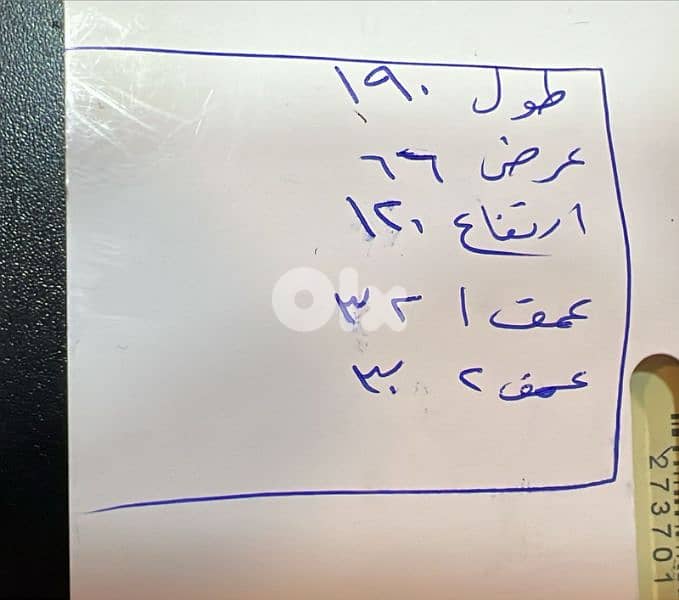 طول ١٩٠
عرض ٦٦
ارتفاع ١٢٠
عمق ١ ٣٢
عمق ٢ ٣٠
olx
273701